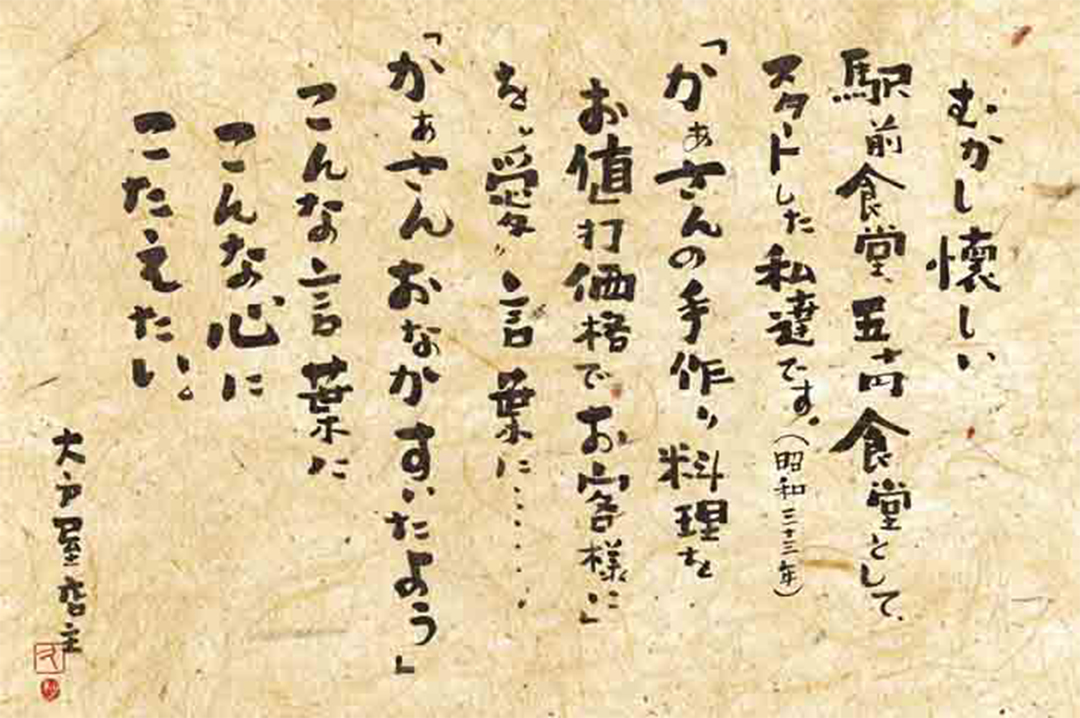 むかし懐しい
駅前食堂、五十円食堂として、
スタートした私達です。(昭和三十三年)
「かぁさんの手作り料理を
お値打価格でお客様に」
を〝愛〟言葉に……
「かぁさんおなかすいたよう」
こんな言葉に
こんな心に
こたえたい。
大戸屋店主